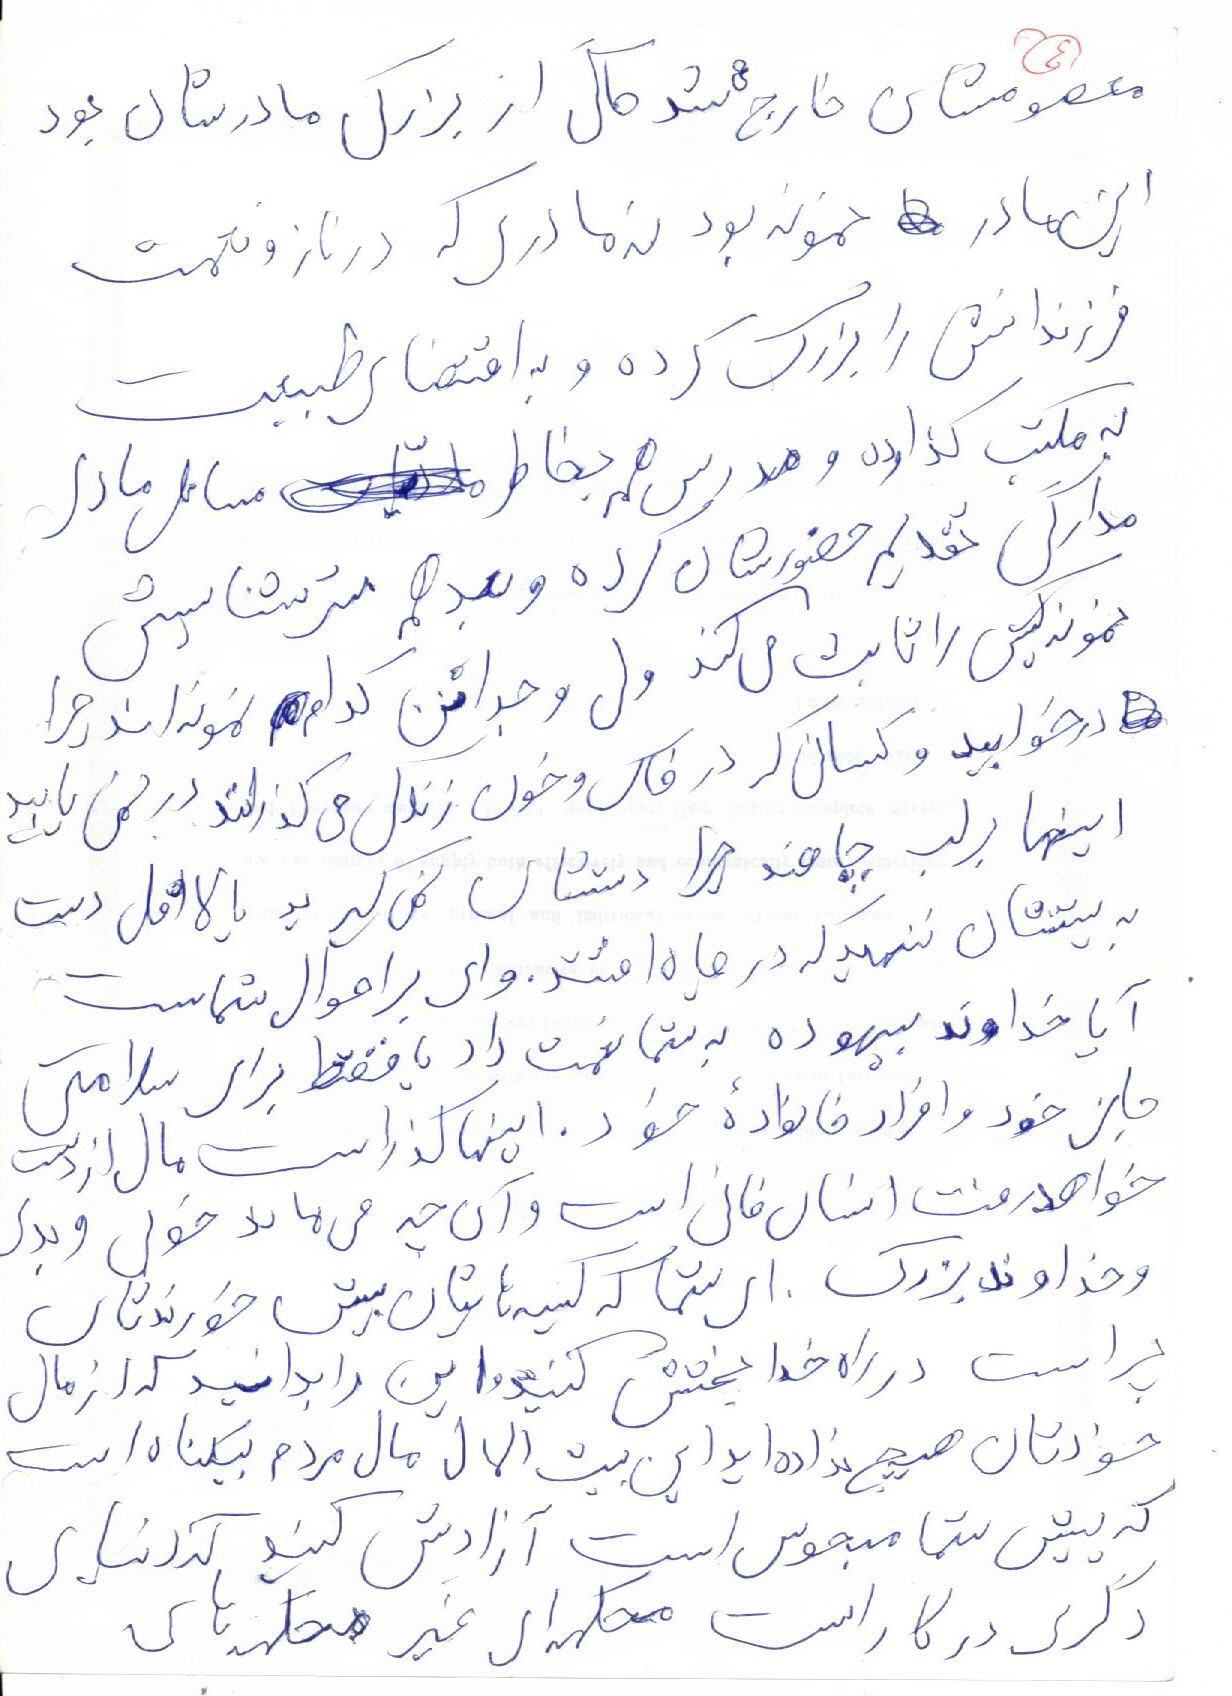 (٤)
معصومشان خارج شد کآن از بزرگ مادرشان بود
این مادر نمونه بود نه مادری که در ناز و نعمت
فرزندانش را بزرگ کرده و به اقتضای طبیعت
به مکتب گذارده و مدرس هم بخاطر مسائل مادی
مدارکی تقدیم حضورشان کرده و بعد هم سرشناسیش
نمونه گیش را ثابت می کند ولی وجداً این کدام نمونه اند چرا
درخوابید و کسانی که در خاک و خون زندگی می گذرانند در نمی یابید
اینها بر لب چاهند چرا دستشان نمی گیرید یا لااقل دست
به پیششان ننهید که در چاه افتند. وای بر احوال شماست
آیا خداوند بیهوده به شما نعمت داد یا فقط برای سلامتی
جان خود و افراد خانوادهٔ خود. اینها گذراست مال از دست
خواهد رفت انسان فانی است و آن چه می ماند خوبی و بدی
و خداوند بزرگ. ای شما که کیسه هایتان پیش خورندتان
پر است در راه خدا بخشش کنید و این را بدانید که از مال
خودتان هیچ نداده اید این بیت المال مال مردم بیگناه است
که پیش شما محبوس است آزادش کنید که دنیایی
دگری در کار است محکمه ای غیر محکمه های